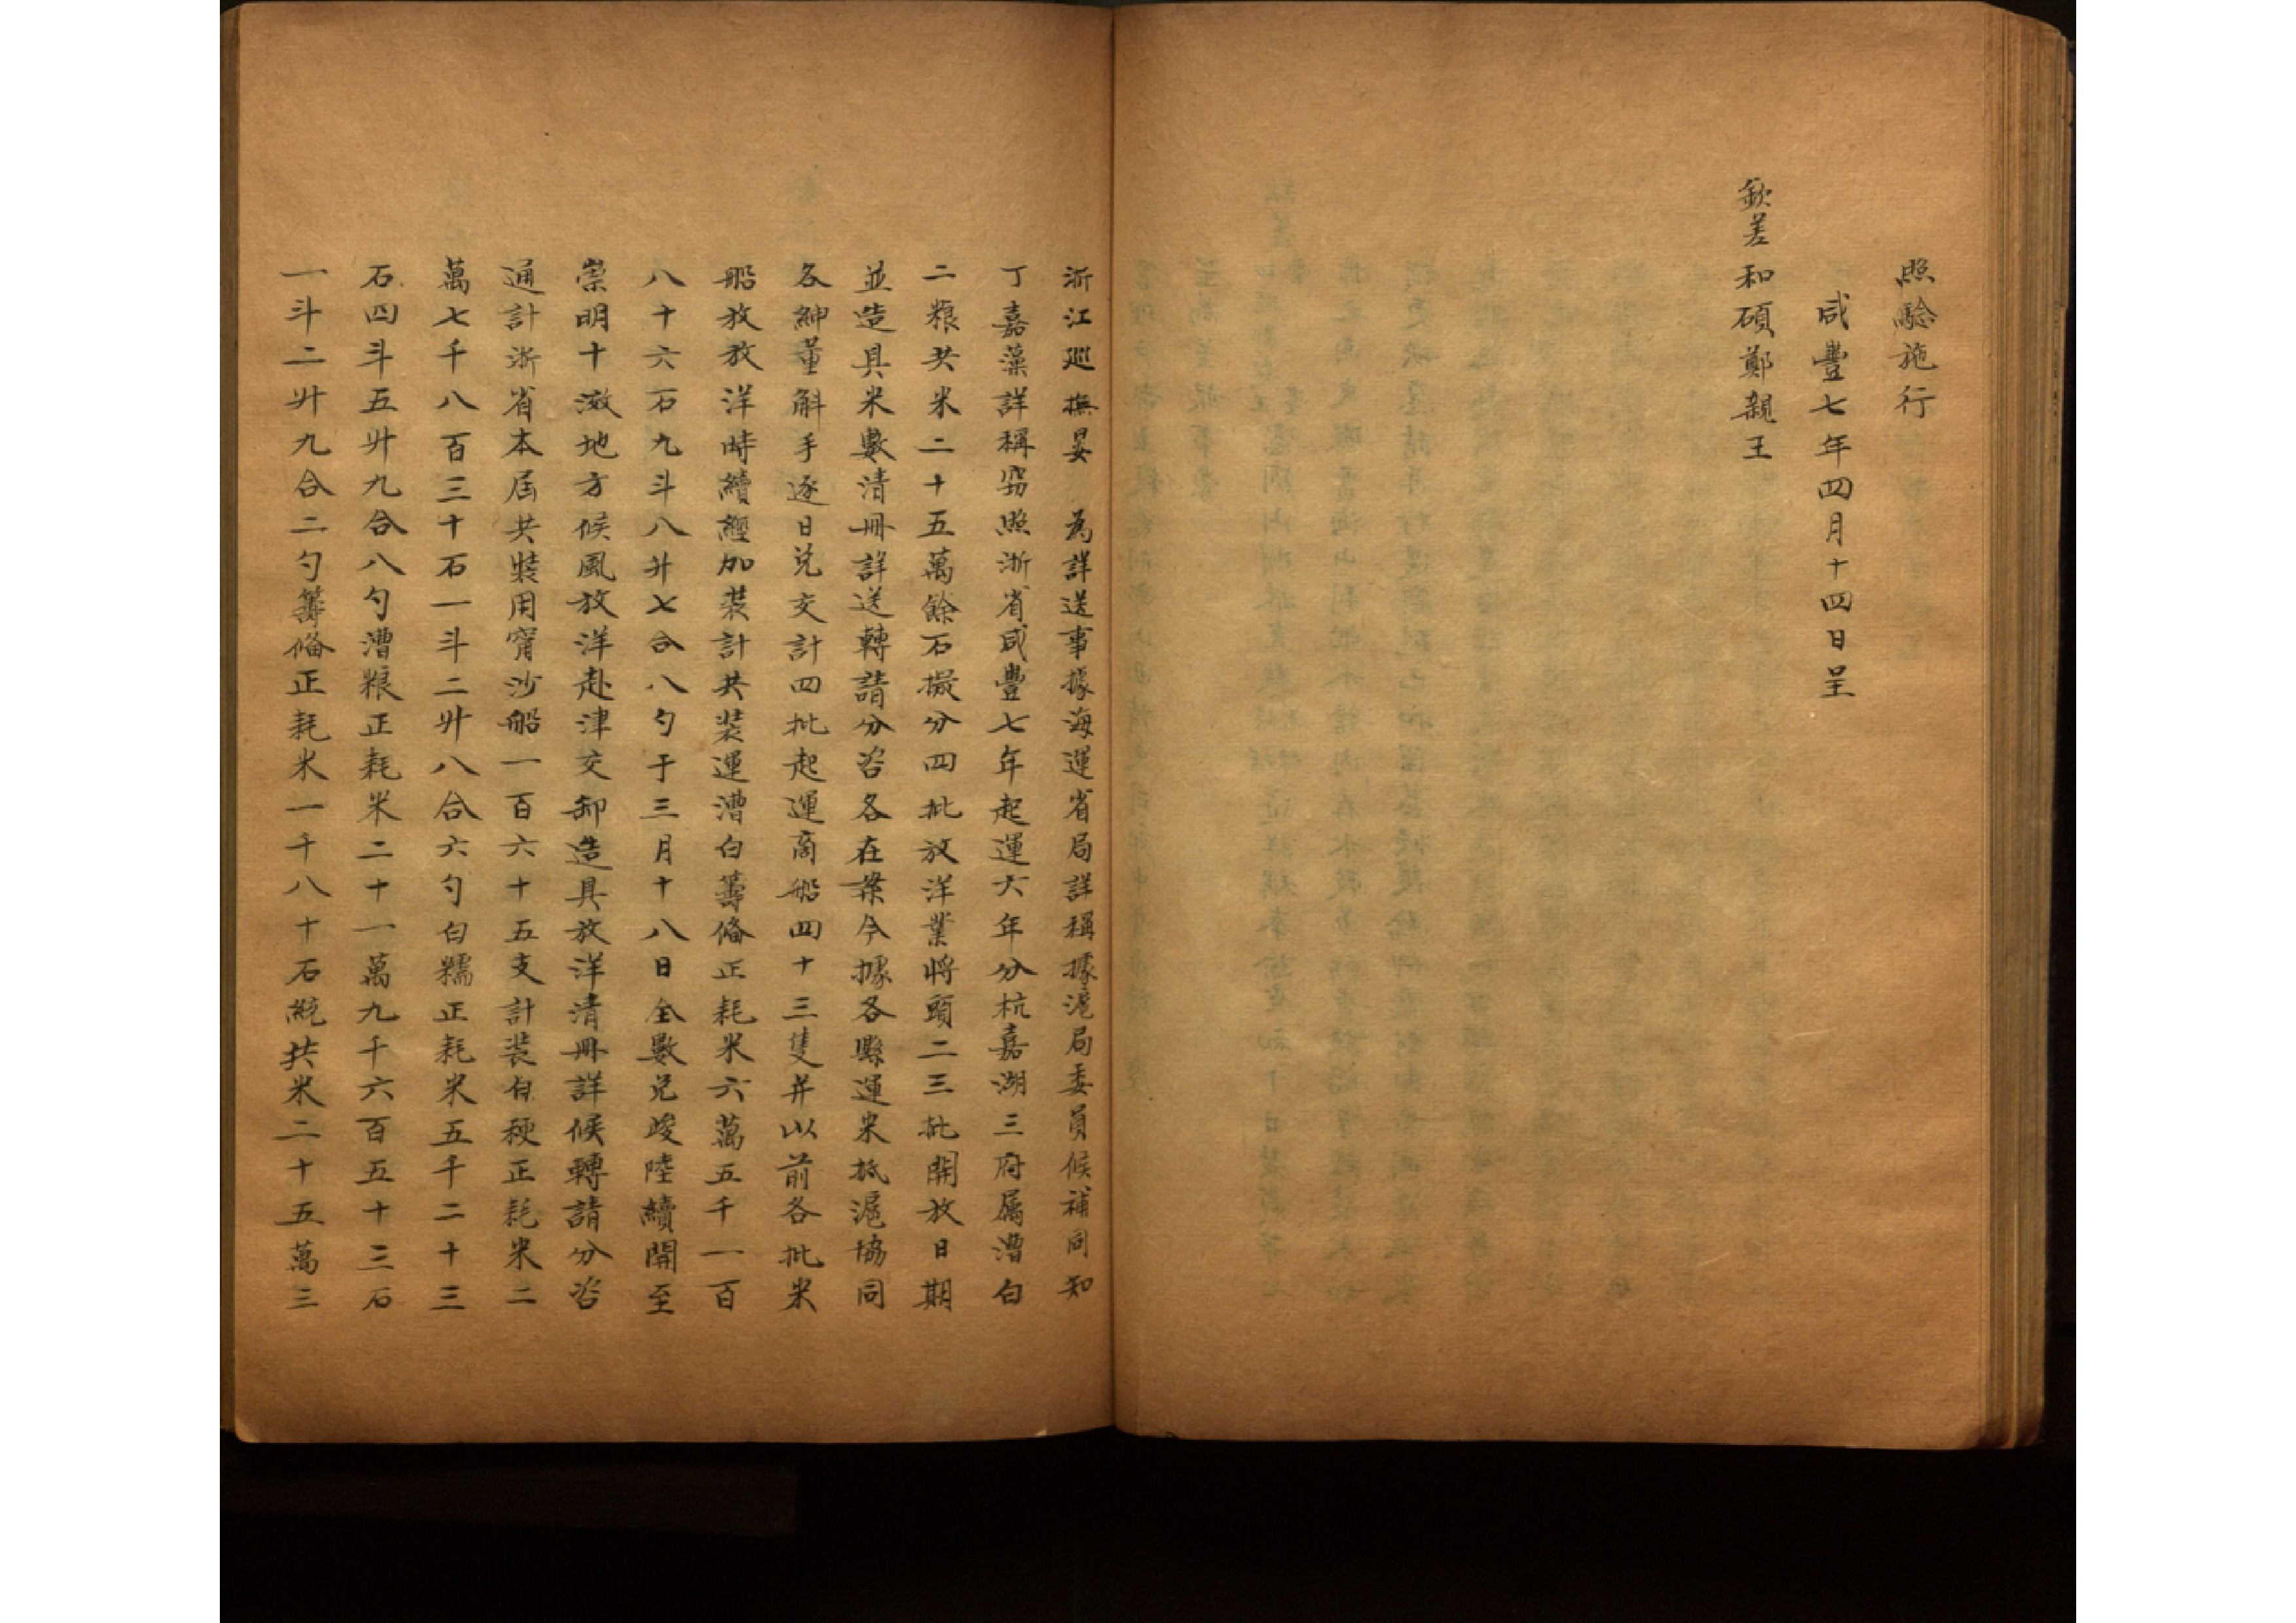 照驗施行
咸豐七年四月十四日呈
欽差和碩鄭親王
浙江廵撫晏　為詳送事據海運省局詳稱據滬局委員候補同知
丁嘉藻詳稱窃照浙省咸豐七年起運六年分杭嘉湖三府屬漕白
二粮共米二十五萬餘石擬分四批放洋業將頭二三批開放日期
並造具米數清冊詳送轉請分咨各在案今據各縣運米抵滬協同
各紳董斛手逐日兑交計四批起運商船四十三隻并以前各批米
船放放洋時續經加裝計共裝運漕白籌俻正耗米六萬五千一百
八十六石九斗八升七合八勺于三月十八日全數兑竣陸續開至
崇明十滧地方候風放洋赴津交卸造具放洋清冊詳候轉請分咨
通計浙省本屆共裝用甯沙船一百六十五支計裝白稉正耗米二
萬七千八百三十石一斗二升八合六勺白糯正耗米五千二十三
石四斗五升九合八勺漕粮正耗米二十一萬九千六百五十三石
一斗二升九合二勺籌俻正耗米一千八十石綂共米二十五萬三